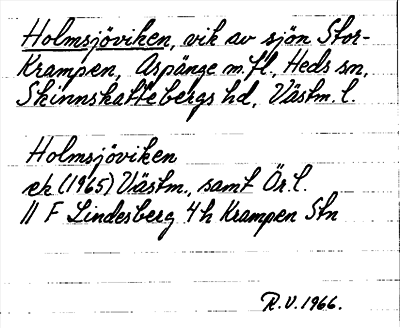 Holmsjöviken, vik av sjön Stor-
Krampen, Aspänge m.fl., Heds sn,
Skinnskattebergs hd, Västm. l.
Holmsjöviken
ek (1965) Västm., samt Ör. l.
11 F Lindesberg 4 h Krampen Stn
R.V. 1966.